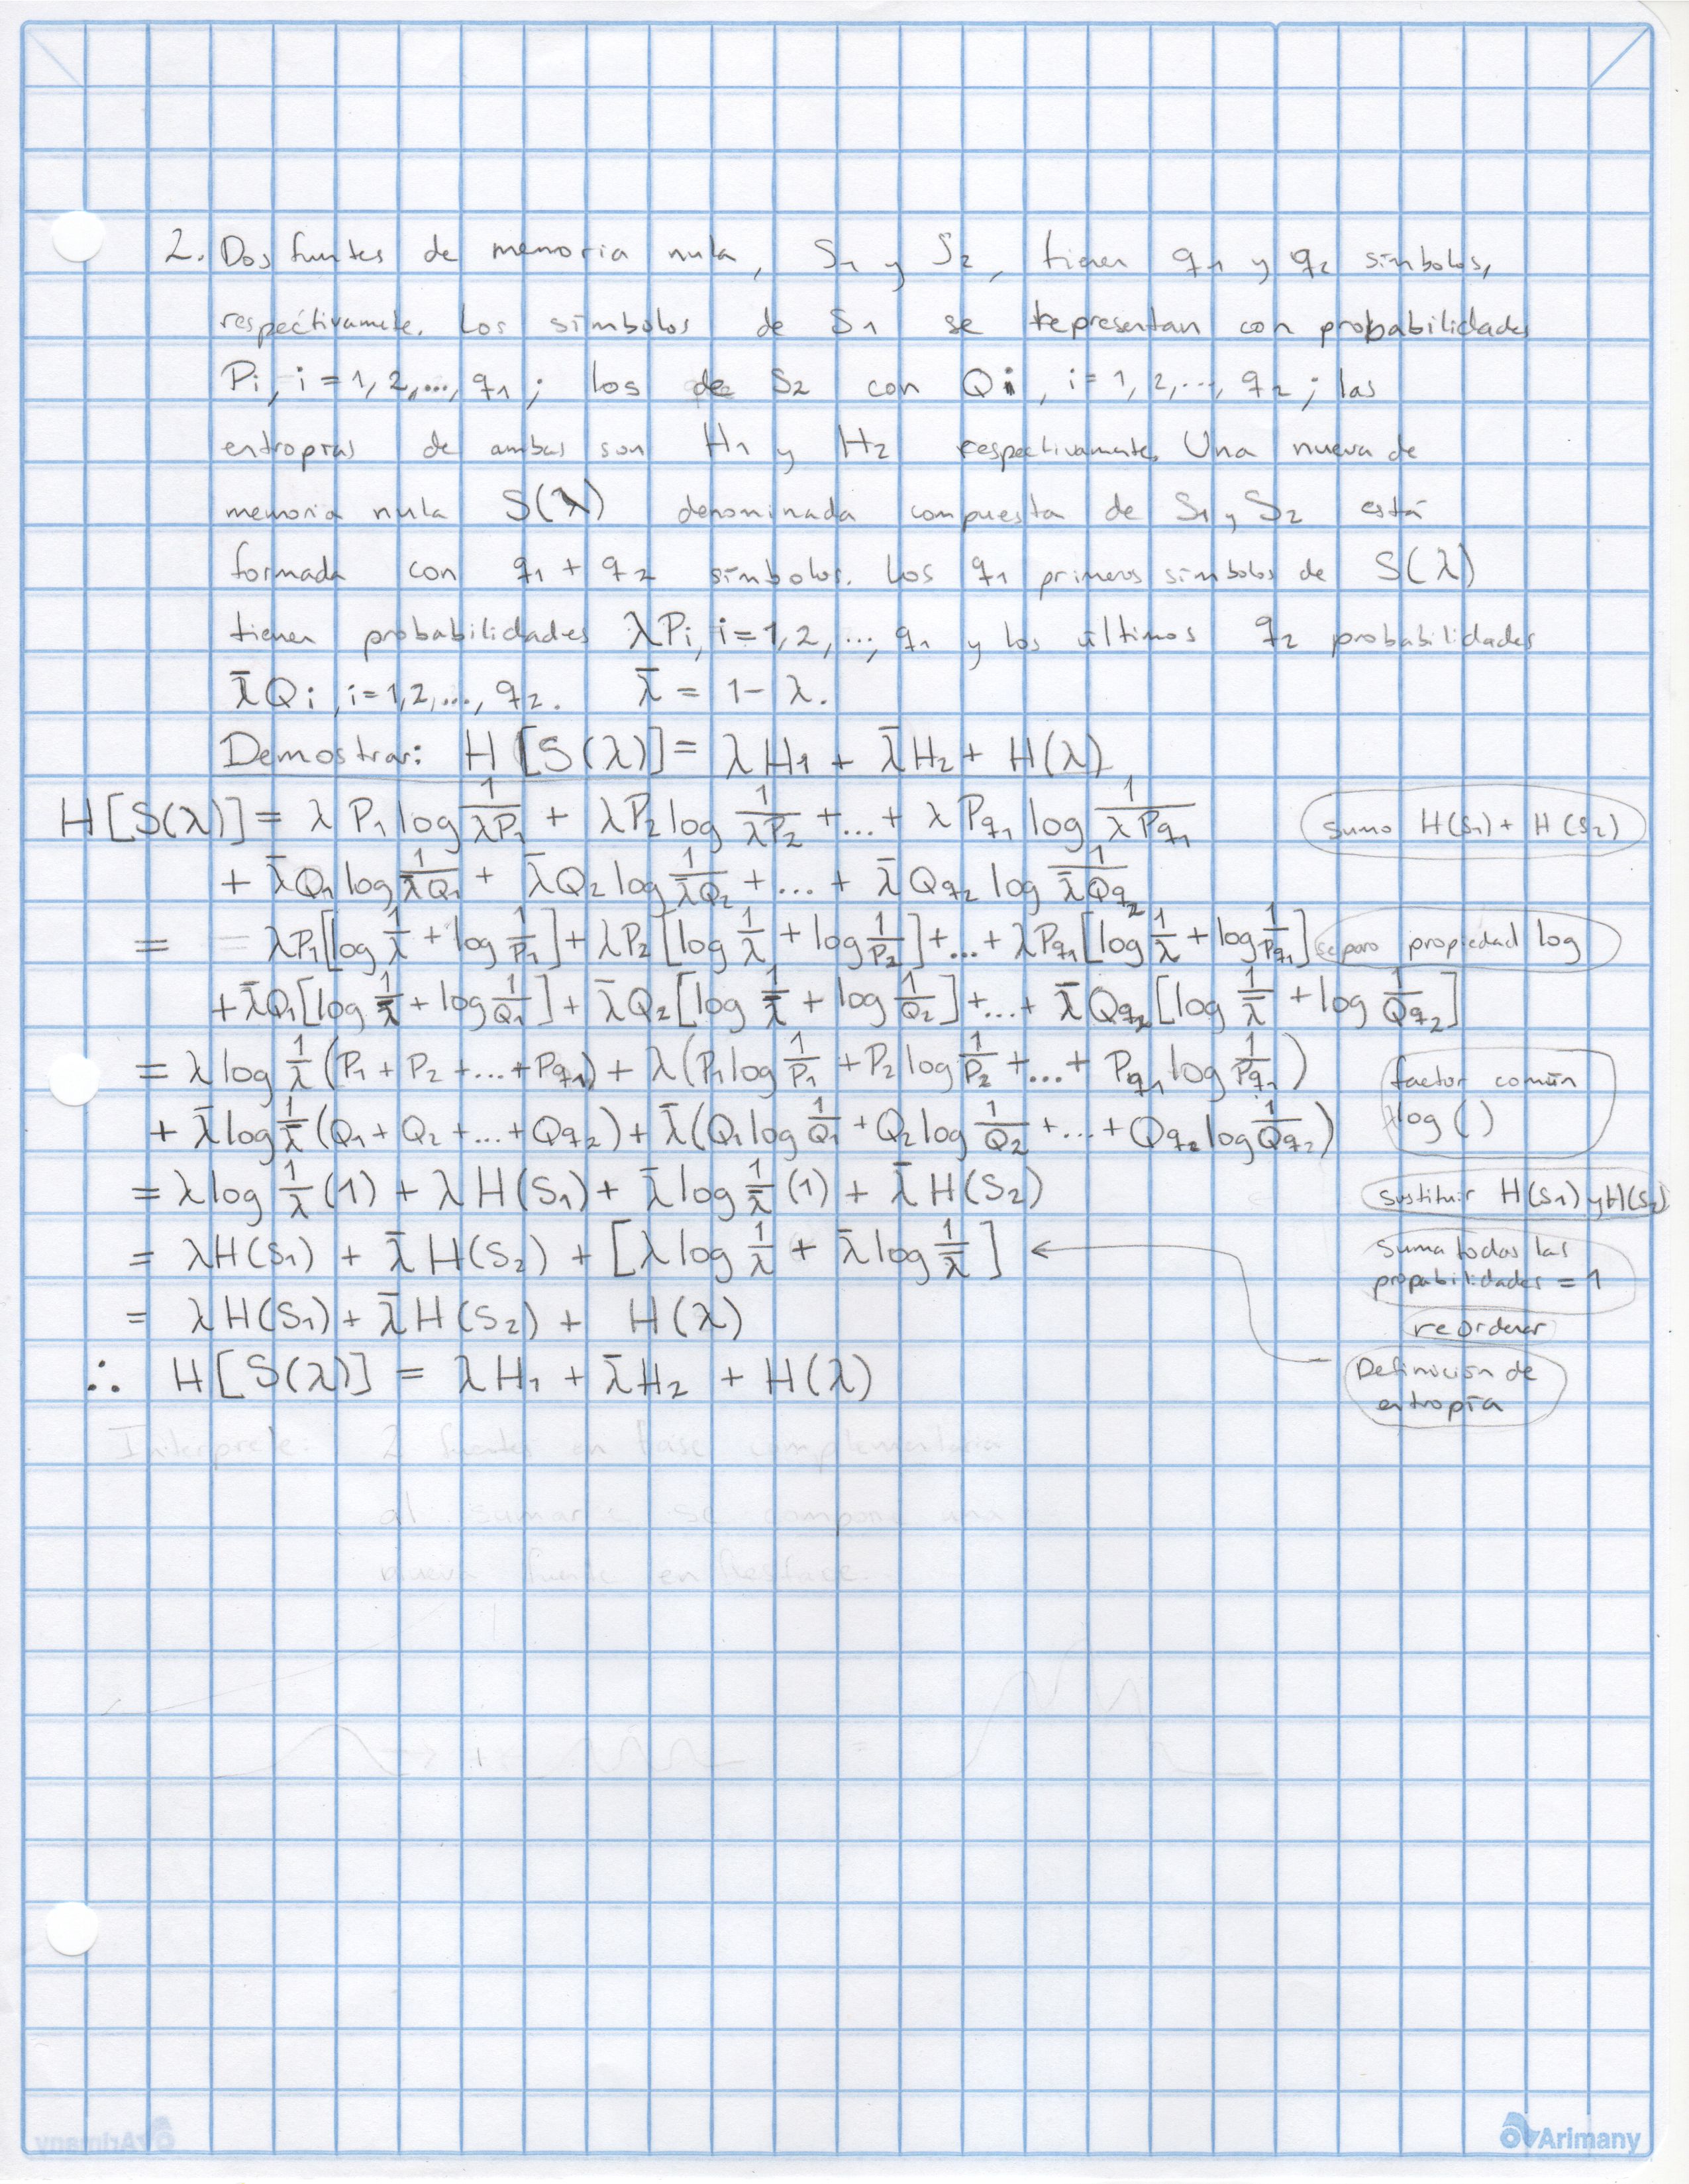 2. Dos funtes de memoria nula, S₁ y S₂, tienen q₁ y q₂ símbolos,
respectivamente. Los símbolos de S₁ se representan con probabilidades
Pi, i = 1, 2, ..., q₁ ; los de S₂ con Qi, i = 1, 2, ..., q₂ ; las
entropías de ambas son H₁ y H₂ respectivamente. Una nueva de
memoria nula S(λ) denominada compuesta de S₁ y S₂ está
formada con q₁ + q₂ símbolos. Los q₁ primeros símbolos de S(λ)
tienen probabilidades λPi, i = 1, 2, ..., q₁ y los últimos q₂ probabilidades
λ̄Qi, i = 1, 2, ..., q₂. λ̄ = 1 - λ.
Demostrar: H[S(λ)] = λH₁ + λ̄H₂ + H(λ)
H[S(λ)] = λ P₁ log 1/(λP₁) + λP₂ log 1/(λP₂) + ... + λ Pq₁ log 1/(λPq₁) sumo H(S₁) + H(S₂)
+ λ̄Q₁ log 1/(λ̄Q₁) + λ̄Q₂ log 1/(λ̄Q₂) + ... + λ̄Qq₂ log 1/(λ̄Qq₂)
= λP₁[log 1/λ + log 1/P₁] + λP₂[log 1/λ + log 1/P₂] + ... + λPq₁[log 1/λ + log 1/Pq₁] separo propiedad log
+ λ̄Q₁[log 1/λ̄ + log 1/Q₁] + λ̄Q₂[log 1/λ̄ + log 1/Q₂] + ... + λ̄Qq₂[log 1/λ̄ + log 1/Qq₂]
= λ log 1/λ (P₁ + P₂ + ... + Pq₁) + λ(P₁ log 1/P₁ + P₂ log 1/P₂ + ... + Pq₁ log 1/Pq₁) factor común
+ λ̄ log 1/λ̄ (Q₁ + Q₂ + ... + Qq₂) + λ̄(Q₁ log 1/Q₁ + Q₂ log 1/Q₂ + ... + Qq₂ log 1/Qq₂) log ( )
= λ log 1/λ (1) + λ H(S₁) + λ̄ log 1/λ̄ (1) + λ̄ H(S₂) sustituir H(S₁) y H(S₂)
= λH(S₁) + λ̄ H(S₂) + [λ log 1/λ + λ̄ log 1/λ̄] ←
suma todas las
propabilidades = 1
= λ H(S₁) + λ̄ H(S₂) + H(λ) reordenar
∴ H[S(λ)] = λH₁ + λ̄H₂ + H(λ)
Definición de
entropía
Interprete: 2 fuentes en fase complementaria
al sumarse se compone una
nueva fuente en desfase.
Arimany